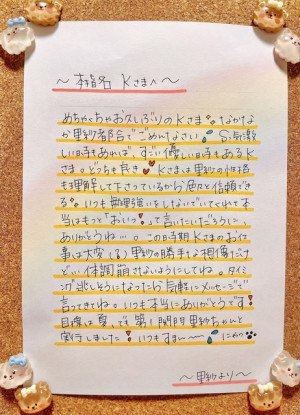 ～ 本指名 Kさまへ ～
めちゃくちゃお久しぶりのKさま なかなか
か里紗都合でごめんなさい S:刺激
しい時もあれば、すごい優しい時もあるK
さま。どっちも良き♥ Kさまは里紗の性格
も理解して下さっているから色々と信頼でき
る いつも無理強いをしないでいてくれて本
当はもっと「おいっ!」て言いたいだろうに、
ありがとうね…。この時期Kさまのお仕
事は大変(多) 里紗の勝手な想像だけ
どい 体調崩さないようにしてね。タイミ
ング逃しそうになったら気軽にメッセージで
言ってきてね。いつも本当にありがとうです!
目標は夏、で第1関門里紗ちゃんと
実行しました! いつもすまい～ にゃわ
～ 里紗より ～